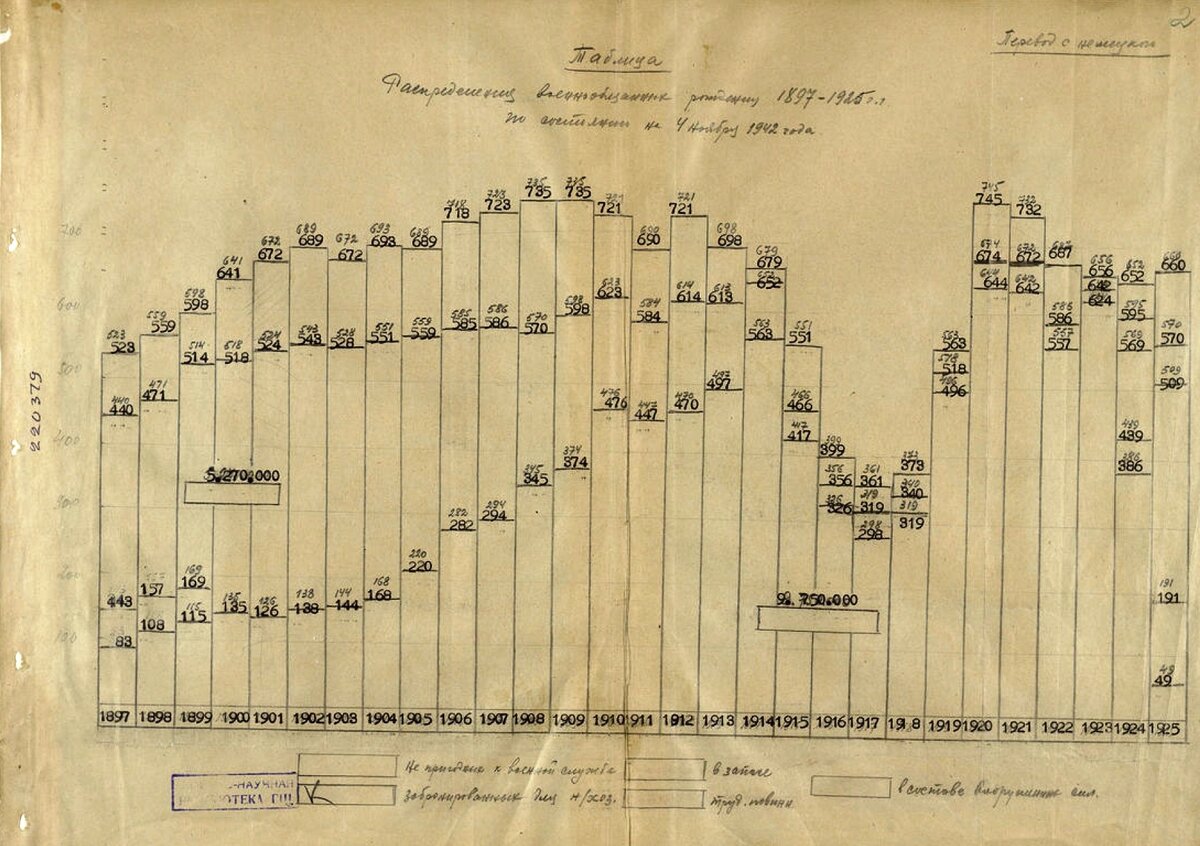 2
Перевод с немецкого
Таблица
Распределения военнообязанных рождения 1897-1925 г.г.
по состоянию на 4 ноября 1942 года
220379
700
600
500
400
300
200
100
523
523
440
440
443
83
559
559
471
471
157
108
598
598
514
514
169
169
115
115
641
641
518
518
135
135
672
672
524
524
126
126
689
689
543
543
138
138
672
672
528
528
144
144
693
693
551
551
168
168
689
689
559
559
220
220
718
718
585
585
282
282
723
723
586
586
294
294
735
735
570
570
345
345
735
735
598
598
374
374
721
721
623
623
476
476
690
690
584
584
447
447
721
721
614
614
470
470
698
698
613
613
497
497
679
679
652
652
563
563
551
551
466
466
417
417
399
399
356
356
326
326
361
361
319
319
298
298
373
373
340
340
319
319
563
563
518
518
496
496
745
745
674
674
644
644
732
732
672
672
642
642
687
687
586
586
557
557
656
656
642
624
652
652
595
595
569
569
439
439
386
386
660
660
570
570
509
509
191
191
49
49
5.270.000
9.750.000
1897 1898 1899 1900 1901 1902 1903 1904 1905 1906 1907 1908 1909 1910 1911 1912 1913 1914 1915 1916 1917 1918 1919 1920 1921 1922 1923 1924 1925
Не пригодны к военной службе
Забронированных для н/хоз.
в запасе
труд. повин
в составе вооруженных сил.
-НАУЧНАЯ
БИБЛИОТЕКА ГЦ